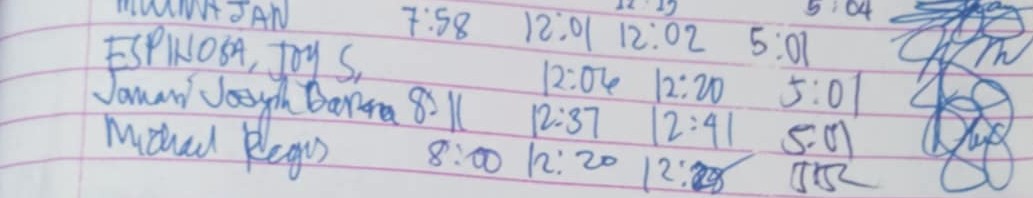 JAN 7:58 12:01 12:02 5:01
ESPINOSA, JOY S. 12:06 12:20 5:01
Joseph 8:11 12:37 12:41 5:01
Michael Regis 8:00 12:20